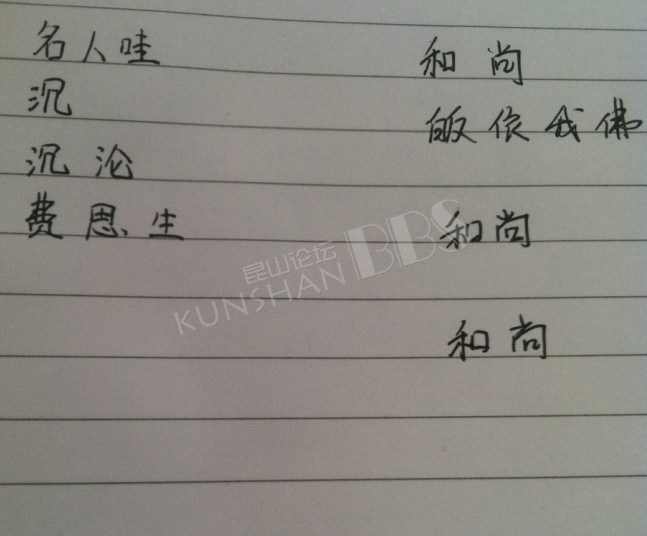 名人哇 和尚
沉 皈依我佛
沉沦
费思生 和尚
昆山论坛 BBS
KUNSHAN
和尚